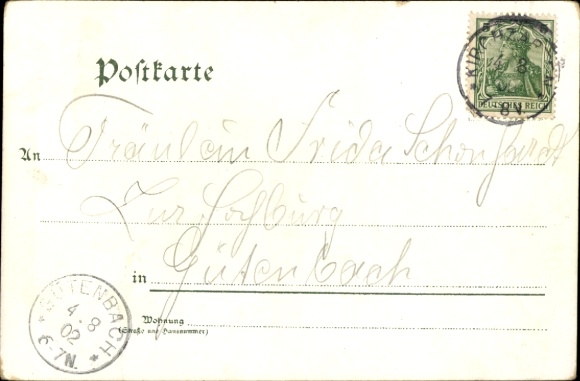 Postkarte
KIRCHZARTEN
4. 8.
8V.
DEUTSCHES REICH
An Fräulein Frida Schonhardt
Zur Hochburg
in Gütenbach
Wohnung
(Straße und Hausnummer)
GÜTENBACH
4 8
02
6-7N.